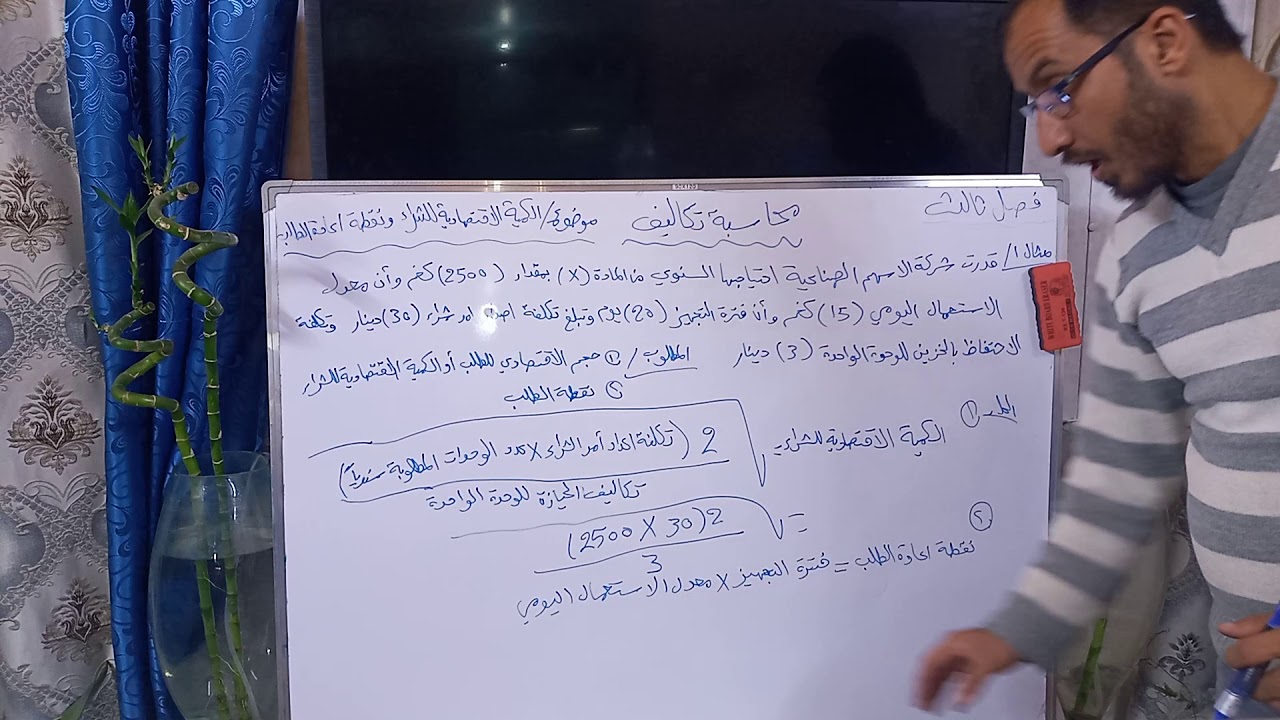 فصل ثالث
محاسبة تكاليف
موضوع/ الكمية الاقتصادية للشراء ونقطة اعادة الطلب
مثال ١/ قدرت شركة الاسهم الصناعية احتياجها السنوي من المادة (X) بمقدار (2500) كغم وأن معدل
الاستعمال اليومي (15) كغم وأن فترة التجهيز (20) يوم وتبلغ تكلفة امر شراء (30) دينار وتكلفة
الاحتفاظ بالخزين للوحدة الواحدة (3) دينار المطلوب/ ① حجم الاقتصادي للطلب أو الكمية الاقتصادية للشراء
② نقطة الطلب
الحل ①
الكمية الاقتصادية للشراء = √ 2 (تكلفة اعداد أمر الشراء X عدد الوحدات المطلوبة سنوياً)
تكاليف الحيازة للوحدة الواحدة
= √ 2(30 X 2500)
3
②
نقطة اعادة الطلب = فترة التجهيز X معدل الاستعمال اليومي
WHITE BOARD ERASER